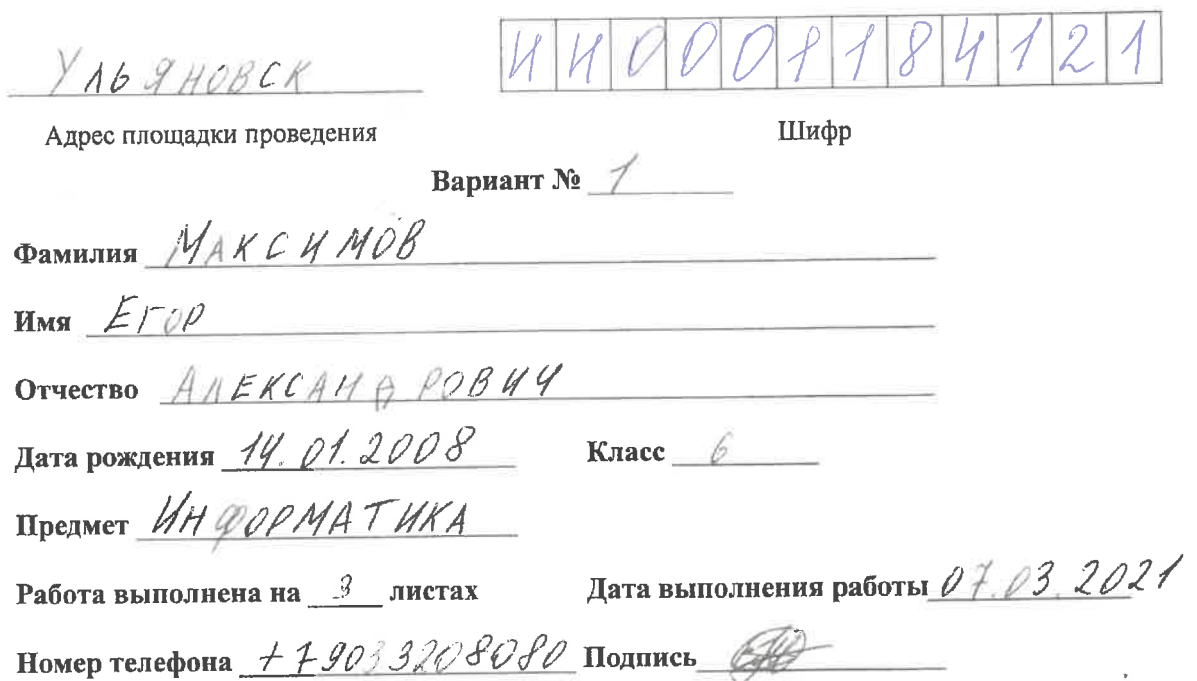 УЛЬЯНОВСК ИН0001184121
Адрес площадки проведения Шифр
Вариант № 1
Фамилия МАКСИМОВ
Имя ЕГОР
Отчество АЛЕКСАНДРОВИЧ
Дата рождения 14.01.2008 Класс 6
Предмет ИНФОРМАТИКА
Работа выполнена на 3 листах Дата выполнения работы 07.03.2021
Номер телефона +79033208080 Подпись